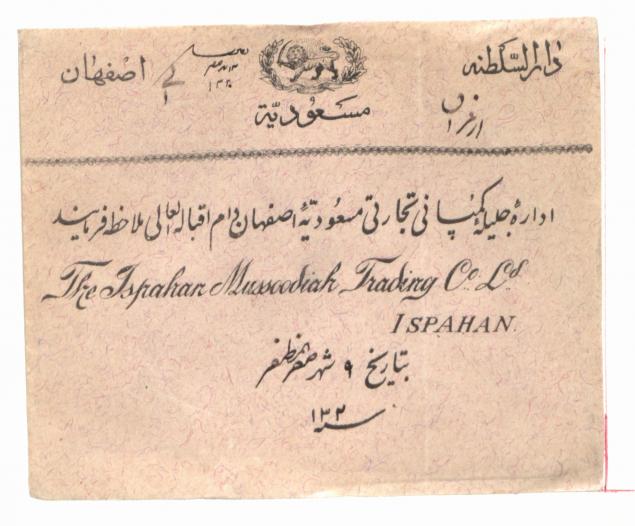 دارالسلطنه
اصفهان
مسعودیّة
ادارهٔ جلیلهٔ کمپانی تجارتی مسعودیّهٔ اصفهان دام اقباله العالی ملاحظه فرمایند
The Ispahan Mussoodiah Trading Co. Ld.
ISPAHAN.
بتاریخ ۹ شهر صفر المظفر
۱۳۲۰